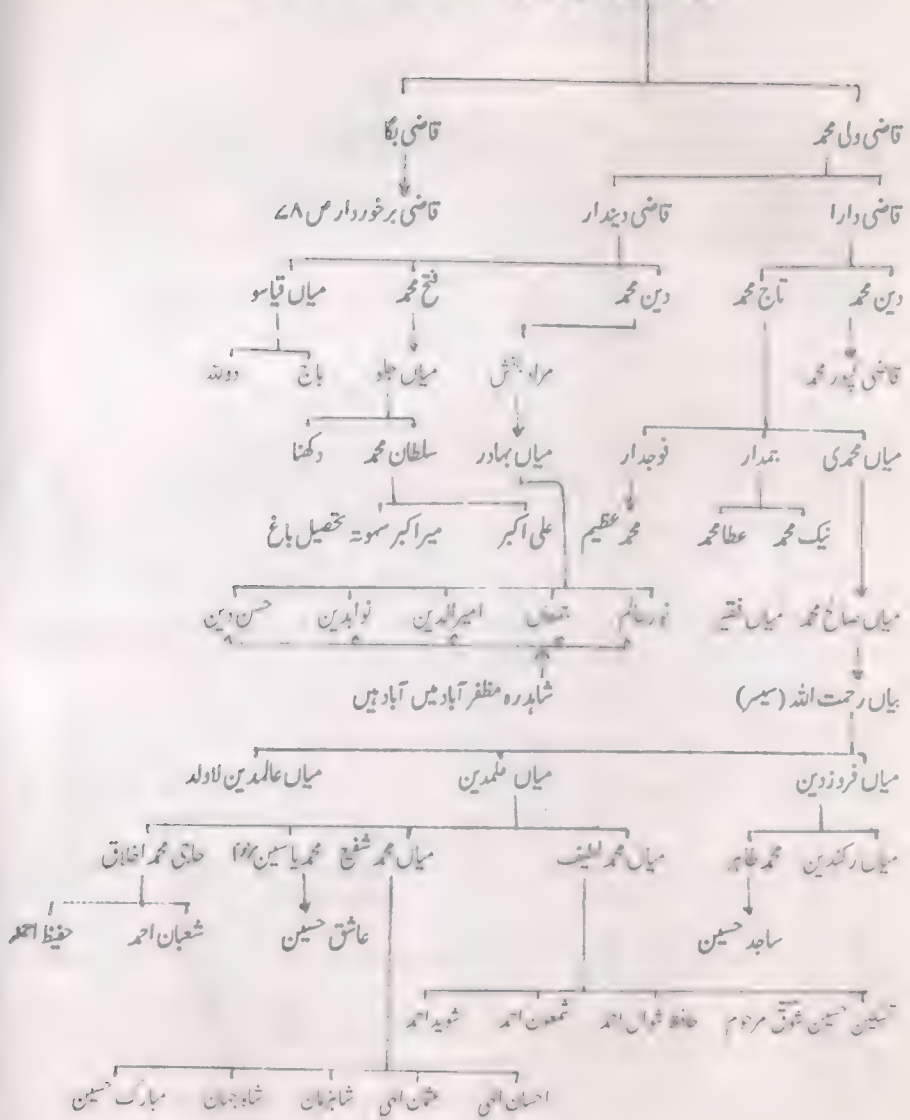 قاضی ولی محمد قاضی بگا
قاضی دارا قاضی دیندار قاضی برخوردار ص ۷۸
دین محمد تاج محمد دین محمد فتح محمد میاں قیاسو
قاضی پور محمد مراد بخش میاں جلو باج دولتہ
میاں محمدی جمدار فوجدار میاں بہادر سلطان محمد دکھنا
نیک محمد عطا محمد محمد عظیم علی اکبر میر اکبر سہوتہ تحصیل باغ
میاں صالح محمد میاں فقیر نور عالم امیرالدین نوابدین حسن دین
میاں رحمت اللہ (سیسر) شاہدرہ مظفر آباد میں آباد ہیں
میاں فروزدین میاں علمدین میاں عالمدین لاولد
میاں رکندین محمد طاہر میاں محمد لطیف میاں محمد شفیع محمد یاسین حاجی محمد اخلاق
ساجد حسین عاشق حسین شعبان احمد حفیظ احمد
حسین شوق مرحوم حافظ شوال احمد شمعون احمد شوید احمد
احسان الہی عثمان الہی شاہزمان شاہ جہان مبارک حسین